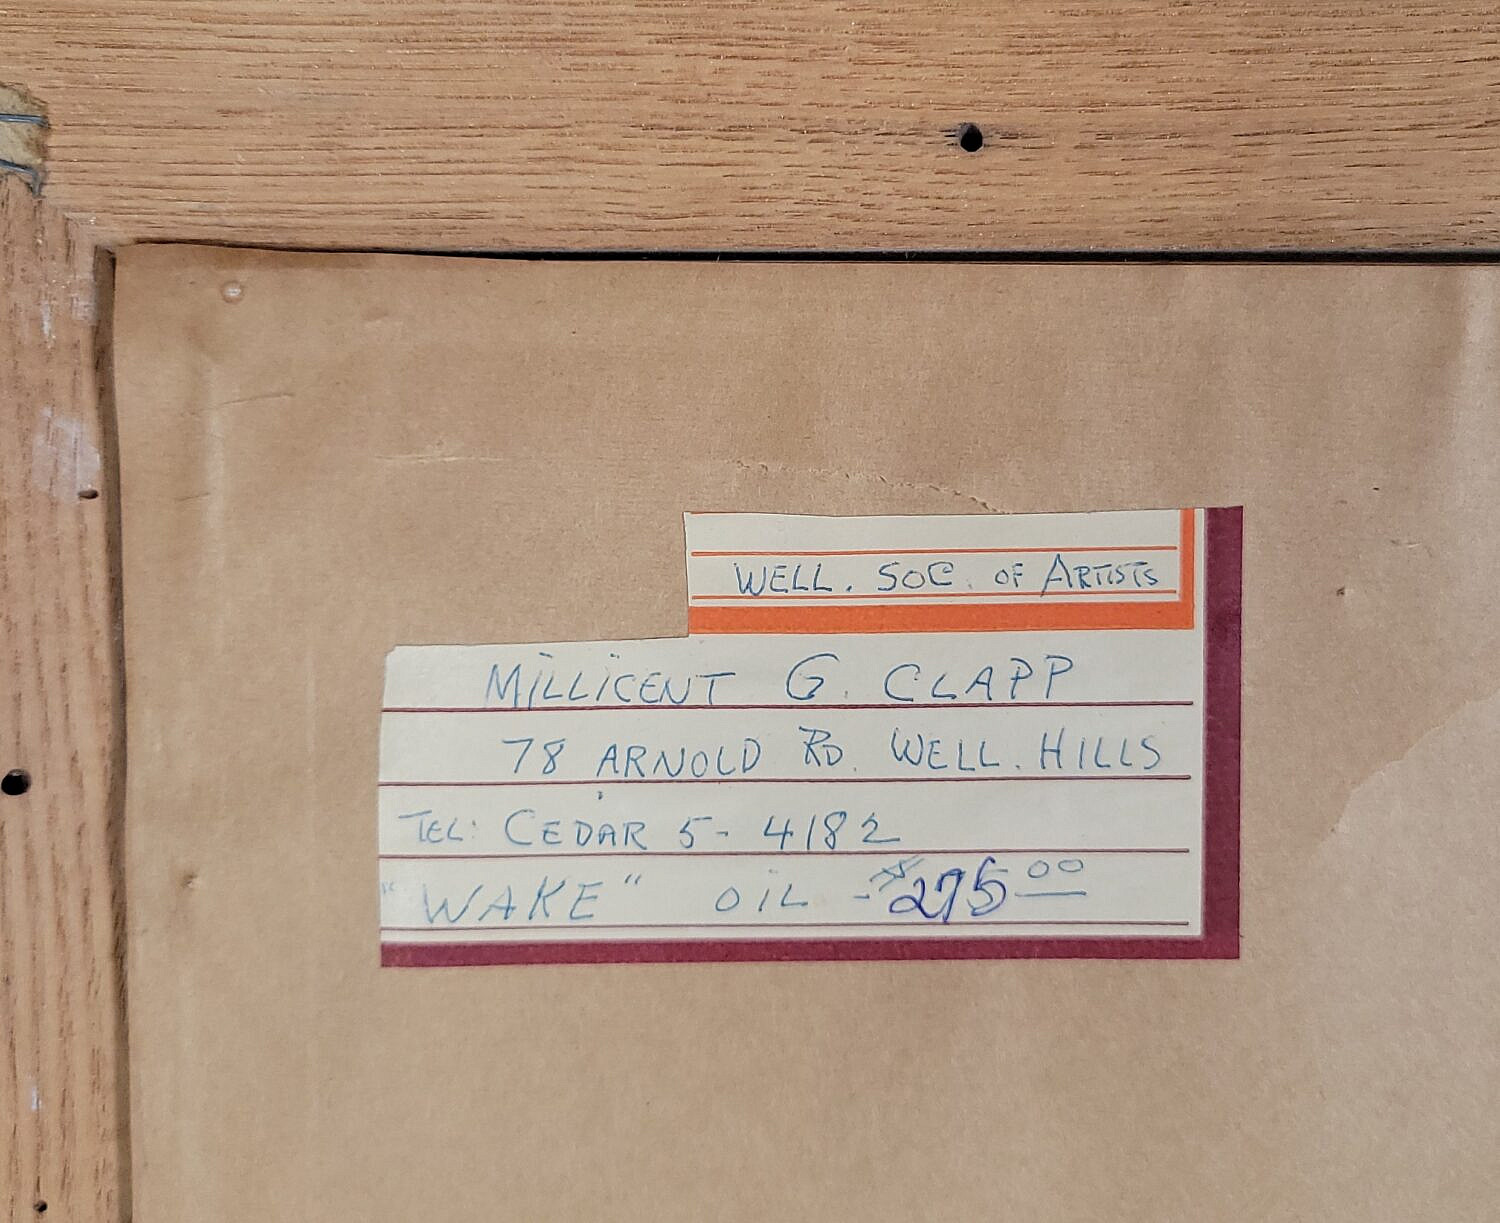 WELL. SOC. OF ARTISTS
MILLICENT G. CLAPP
78 ARNOLD RD. WELL. HILLS
TEL: CEDAR 5-4182
"WAKE" OIL - $275.00